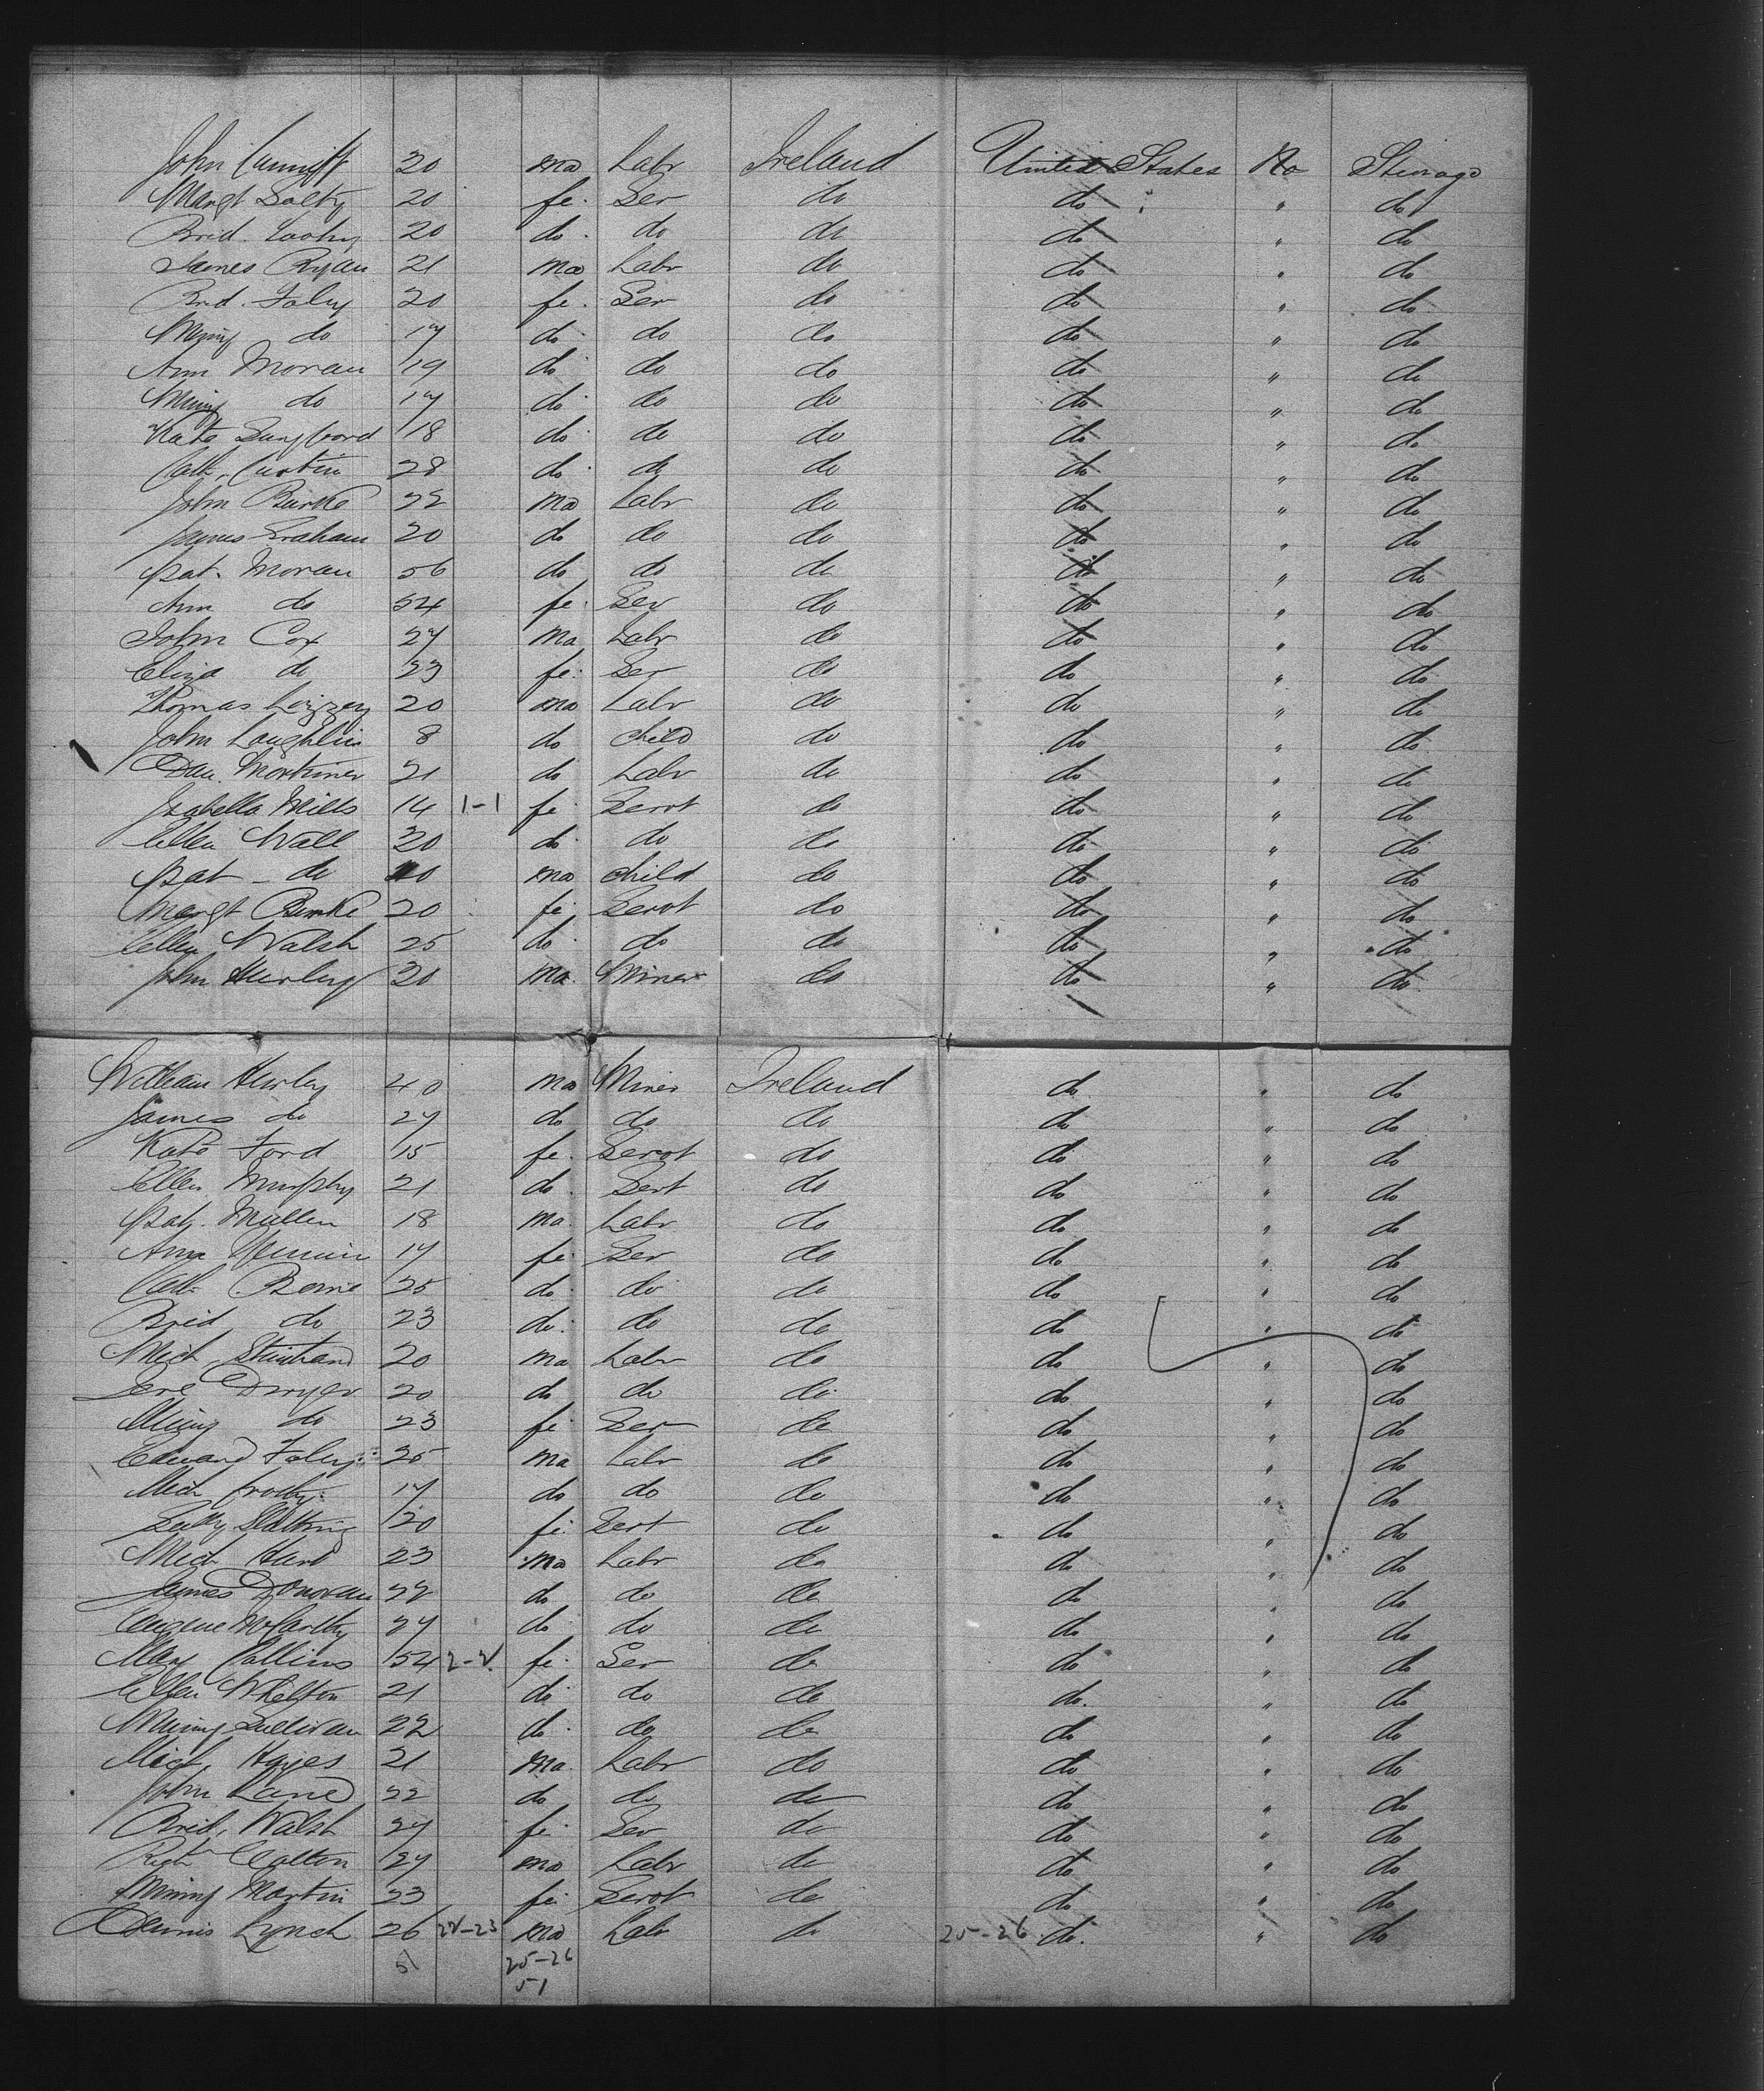 John Cunniff 20 ma Labr Ireland United States No Steerage
Margt 20 fe. Ser do do " do
Brid. 20 do. do do do " do
James Ryan 21 ma Labr do do " do
Brid. Foley 20 fe. Ser do do " do
do 17 do. do do do " do
Ann Moran 19 do do do do " do
do 17 do. do do do " do
Kate 18 do. do do do " do
Cath. Curtin 28 do. do do do " do
John Burke 22 ma Labr do do " do
James Graham 20 do do do do " do
Pat. Moran 56 do do do do " do
Ann do 54 fe. Ser do do " do
John Cox 27 ma Labr do do " do
Eliza do 23 fe. Ser do do " do
Thomas 20 ma Labr do do " do
John Laughlin 8 do child do do " do
Dan. Mortimer 21 do Labr do do " do
Isabella Mills 14 1-1 fe Servt do do " do
Ellen Wall 20 do. do do do " do
Pat - do ma child do do " do
Margt Burke 20 fe Servt do do " do
Ellen Walsh 25 do. do do do " do
John Hurley 30 ma. Miner do do " do
William Hurley 40 ma Miner Ireland do " do
James do 27 do do do do " do
Kate Ford 15 fe. Servt do do " do
Ellen Murphy 21 do. Sert do do " do
Pat. Mullen 18 ma. Labr do do " do
Ann 17 fe. Ser do do " do
Cath. 25 do. do do do " do
Brid do 23 do. do do do " do
Mich. 20 ma Labr do do " do
Jere Dwyer 20 do do do do " do
do 23 fe Ser do do " do
Edward Foley 25 ma Labr do do " do
Mich 17 do do do do " do
20 fe. Sert do do " do
Mich 23 ma Labr do do " do
James Donovan 22 do do do do " do
Eugene McCarthy 27 do do do do " do
Mary Collins 54 2-2 fe. Ser do do " do
Ellen Whelton 21 do do do do. " do
Sullivan 22 do. do do do " do
Mich. Hayes 21 ma. Labr do do " do
John Lane 22 do do do do " do
Brid. Walsh 27 fe. Ser do do " do
Richd 27 ma Labr do do " do
Martin 23 fe. Servt do do " do
Dennis Lynch 26 22-23 ma Labr do 25-26 do. " do
51 25-26
51